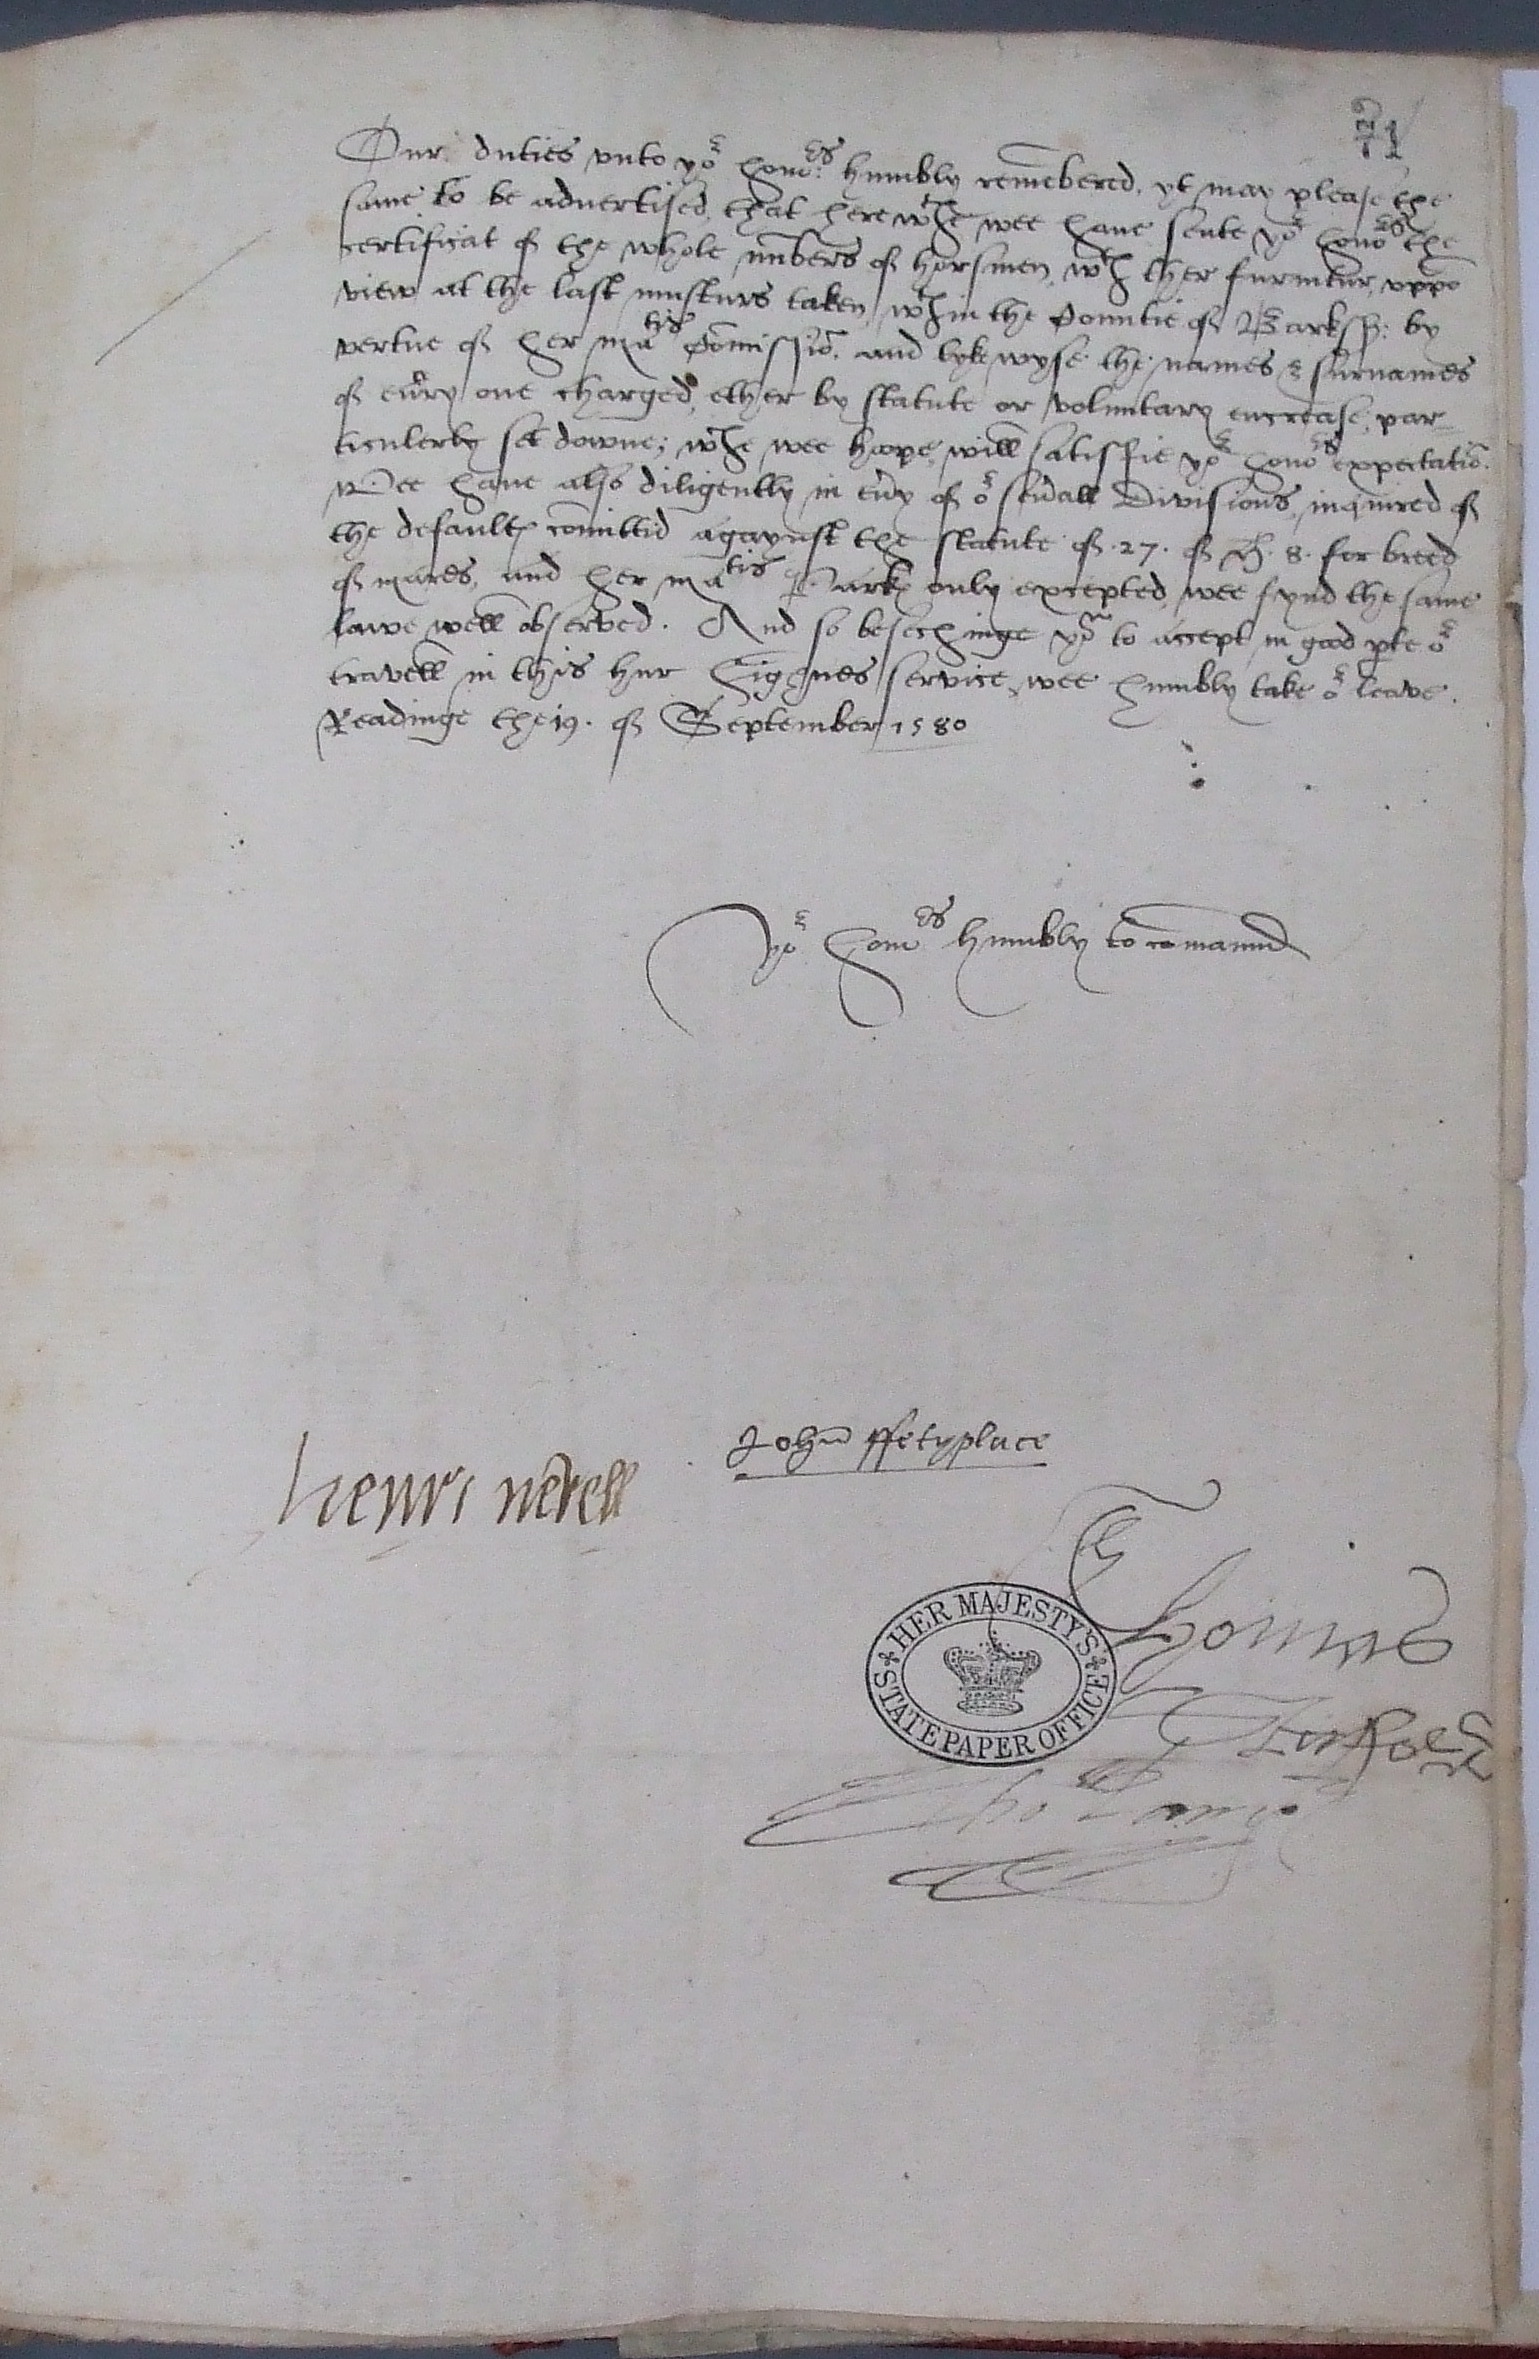 71
Our duties vnto yor honrs: humbly remēbered, yt may please the
same to be aduertised, that herewth wee haue sente yor honors the
certificat of the whole nūbers of horsmen, wth ther furnitur, vppō
view at the last musturs taken, wthin the Countie of Barksh: by
vertue of her matis Cōmissiō. and lykewyse the names & surnames
of eūry one charged, ether by statute or voluntary encrease, par-
ticulerly set downe; wche wee hoope, will satisfie yor honors expectatiō.
Wee haue also diligently in eūy of or seūall Divisions, inquired of
the defaultes cōmittid agaynst the statute of .27. of H. 8. for breed
of mares, and her matis Parkes only excepted, wee fynd the same
lawe well observed. And so besechinge yow to accept in good pte or
travell in this hur Highnes service, wee humbly take or leave.
Readinge the 19. of September 1580
Yor honrs humbly to comaund
John ffetyplace
henri nevell
Thomas
HER MAJESTY'S STATE PAPER OFFICE
Tho